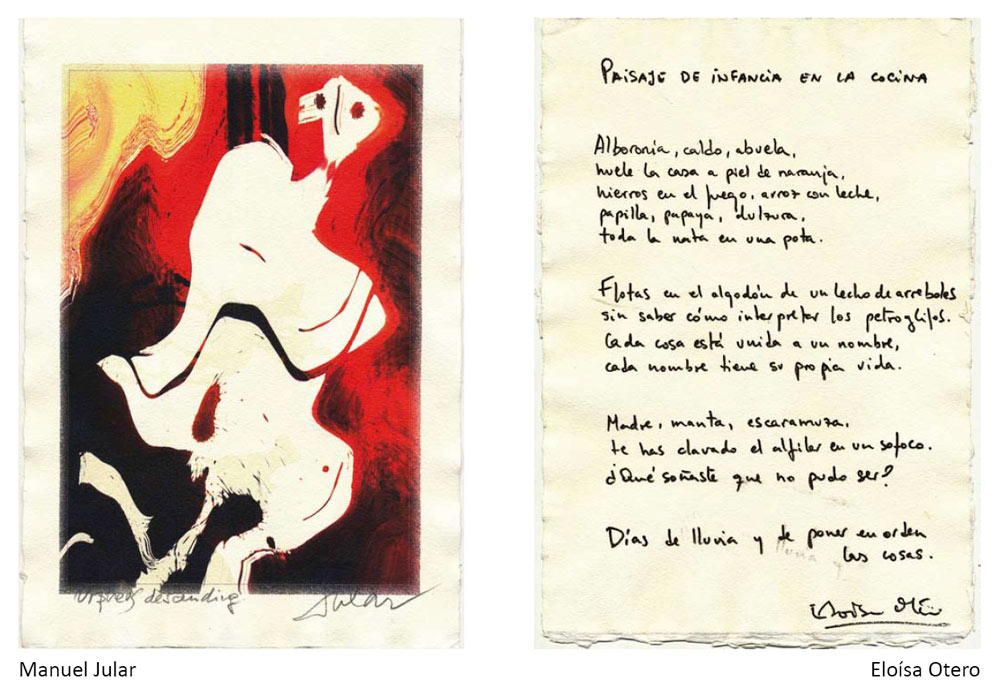 descending
Jular
PAISAJE DE INFANCIA EN LA COCINA
Alboronía, caldo, abuela,
huele la casa a piel de naranja,
hierros en el fuego, arroz con leche,
papilla, papaya, dulzura,
toda la nata en una pota.
Flotas en el algodón de un lecho de arreboles
sin saber cómo interpretar los petroglifos.
Cada cosa está unida a un nombre,
cada nombre tiene su propia vida.
Madre, manta, escaramuza,
te has clavado el alfiler en un sofoco.
¿Qué soñaste que no pudo ser?
Días de lluvia y de poner en orden
lluvia y
las cosas.
Manuel Jular
Eloísa Otero